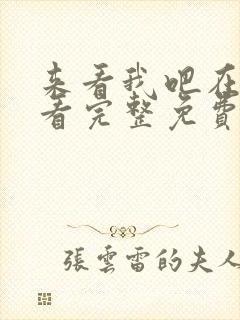 来看我吧在
看完整免費
張雲雷的夫人